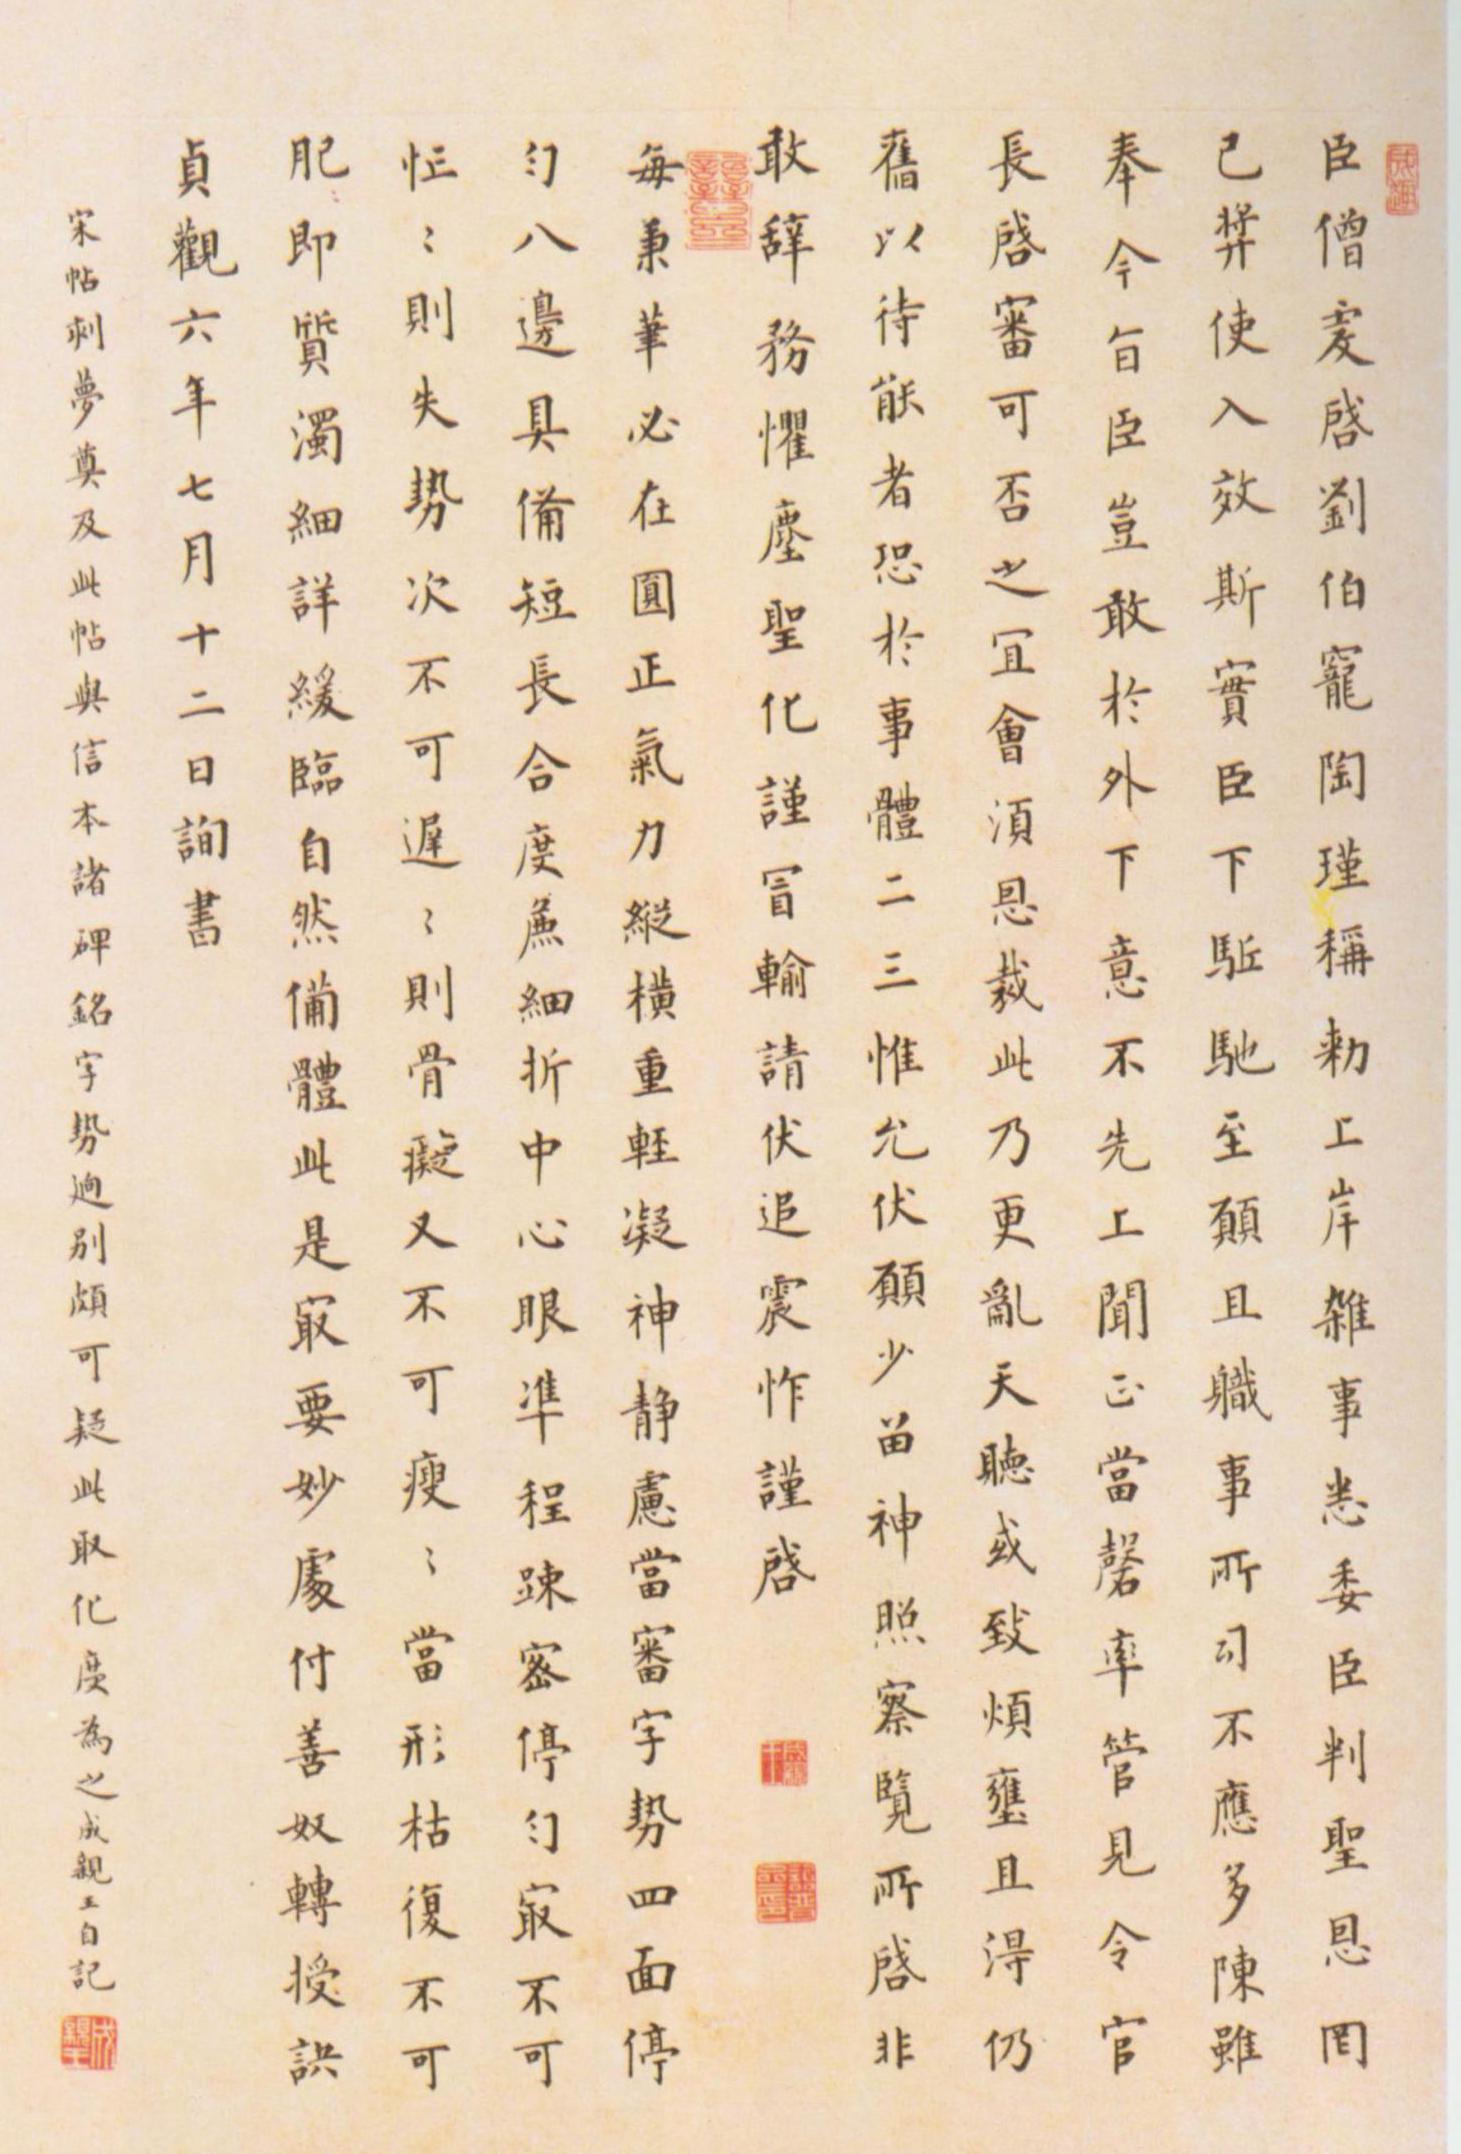 臣僧虔啓劉伯寵陶瑾稱勑上岸雜事悉委臣判聖恩罔
已弉使入效斯實臣下駈馳至願且職事所司不應多陳雖
奉今旨臣豈敢於外下意不先上聞正當罄率管見令官
長啓審可否之宜會湏恩裁此乃更亂天聽或致煩壅且淂仍
舊以待能者恐於事體二三惟允伏願少留神照察覽所啓非
敢辞務懼塵聖化謹冒輸請伏追震怍謹啓
每秉筆必在圓正氣力縱橫重軽凝神静慮當審字勢四面停
匀八邊具備短長合度麁細折中心眼準程踈密停匀㝡不可
忙〻則失勢次不可遲〻則骨癡又不可瘦〻當形枯復不可
肥即質濁細詳緩臨自然備體此是㝡要妙處付善奴轉授訣
貞觀六年七月十二日詢書
宋帖刺夢奠及此帖與信本諸碑銘字勢逈別頗可疑此取化度為之成親王自記